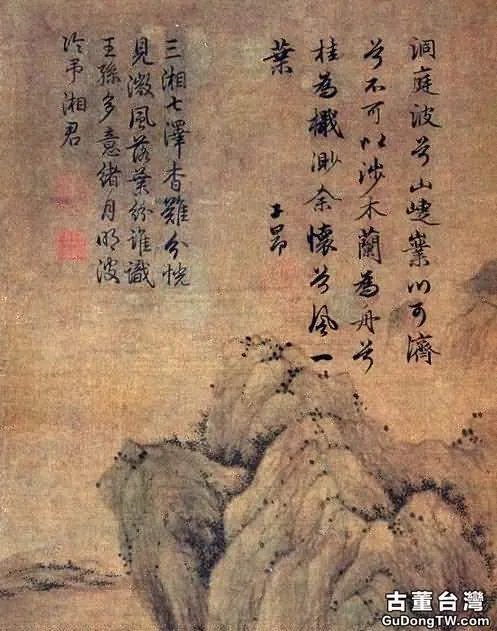 洞庭波兮山崨嶪川可濟
兮不可以涉木蘭為舟兮
桂為檝渺余懷兮風一
葉
子昂
三湘七澤杳難分恍
見微風落葉紛誰識
王孫多意緒月明波
冷弔湘君
古董台灣
GuDongTW.com